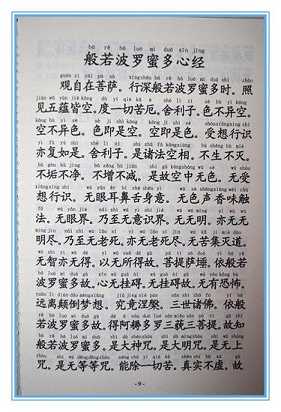 般若波罗蜜多心经
观自在菩萨。行深般若波罗蜜多时。照
见五蕴皆空,度一切苦厄。舍利子。色不异空。
空不异色。色即是空。空即是色。受想行识
亦复如是。舍利子。是诸法空相。不生不灭。
不垢不净。不增不减。是故空中无色。无受
想行识。无眼耳鼻舌身意。无色声香味触
法。无眼界。乃至无意识界。无无明。亦无无
明尽。乃至无老死。亦无老死尽。无苦集灭道。
无智亦无得。以无所得故。菩提萨埵。依般若
波罗蜜多故。心无挂碍。无挂碍故。无有恐怖。
远离颠倒梦想。究竟涅槃。三世诸佛。依般
若波罗蜜多故。得阿耨多罗三藐三菩提。故知
般若波罗蜜多。是大神咒。是大明咒。是无上
咒。是无等等咒。能除一切苦。真实不虚。故
-9-